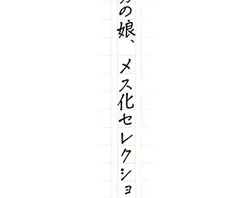 の娘、メス化セレクショ